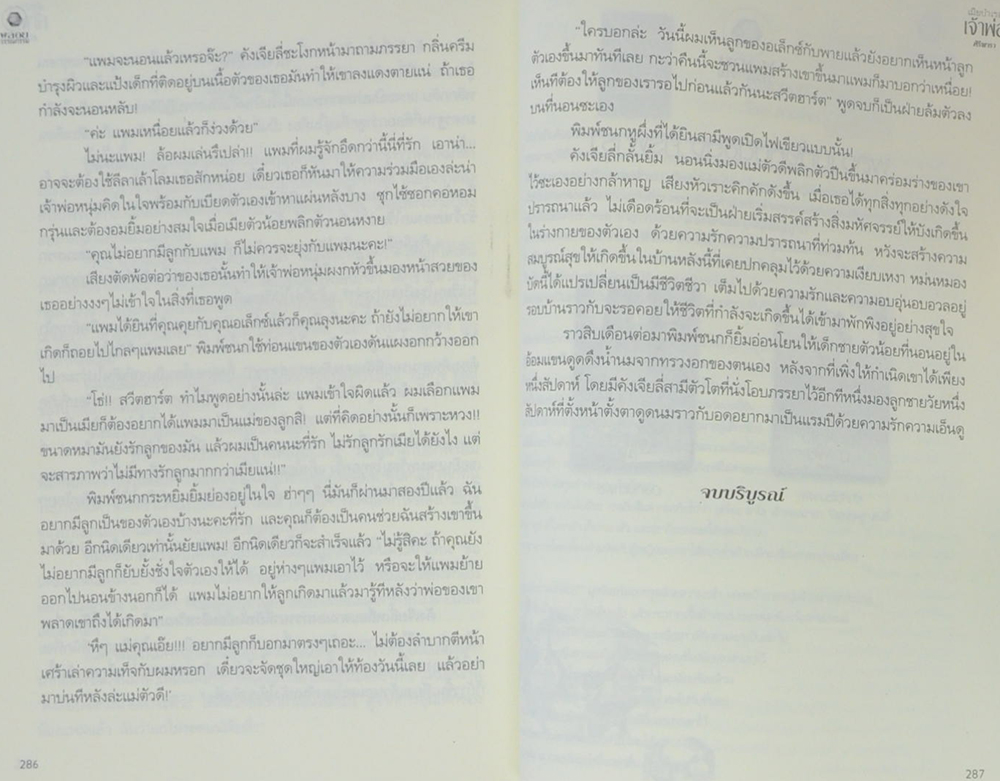 พลอย
วรรณกรรม
“แพมจะนอนแล้วเหรอจ๊ะ?” คังเจียลี่ชะโงกหน้ามาถามภรรยา กลิ่นครีม
บำรุงผิวและแป้งเด็กที่ติดอยู่บนเนื้อตัวของเธอมันทำให้เขาลงแดงตายแน่ ถ้าเธอ
กำลังจะนอนหลับ!
“ค่ะ แพมเหนื่อยแล้วก็ง่วงด้วย”
ไม่นะแพม! ล้อผมเล่นรึเปล่า!! แพมที่ผมรู้จักอึดกว่านี้นี่ที่รัก เอาน่า...
อาจจะต้องใช้ลีลาเล้าโลมเธอสักหน่อย เดี๋ยวเธอก็หันมาให้ความร่วมมือล่ะน่า
เจ้าพ่อหนุ่มคิดในใจพร้อมกับเบียดตัวเองเข้าหาแผ่นหลังบาง ซุกไซ้ซอกคอหอม
กรุ่นและต้องอมยิ้มอย่างสมใจเมื่อเมียตัวน้อยพลิกตัวนอนหงาย
“คุณไม่อยากมีลูกกับแพม ก็ไม่ควรจะยุ่งกับแพมนะคะ!”
เสียงตัดพ้อต่อว่าของเธอนั้นทำให้เจ้าพ่อหนุ่มผงกหัวขึ้นมองหน้าสวยของ
เธออย่างงงๆไม่เข้าใจในสิ่งที่เธอพูด
“แพมได้ยินที่คุณคุยกับคุณอเล็กซ์แล้วก็คุณลุงนะคะ ถ้ายังไม่อยากให้เขา
เกิดก็ถอยไปไกลๆแพมเลย” พิมพ์ชนกใช้ท่อนแขนของตัวเองดันแผงอกกว้างออก
ไป
“โธ่!! สวีตฮาร์ต ทำไมพูดอย่างนั้นล่ะ แพมเข้าใจผิดแล้ว ผมเลือกแพม
มาเป็นเมียก็ต้องอยากได้แพมมาเป็นแม่ของลูกสิ! แต่ที่คิดอย่างนั้นก็เพราะหวง!!
ขนาดหมามันยังรักลูกของมัน แล้วผมเป็นคนนะที่รัก ไม่รักลูกรักเมียได้ยังไง แต่
จะสารภาพว่าไม่มีทางรักลูกมากกว่าเมียแน่!!”
พิมพ์ชนกกระหยิ่มยิ้มย่องอยู่ในใจ ฮ่าๆๆ นี่มันก็ผ่านมาสองปีแล้ว ฉัน
อยากมีลูกเป็นของตัวเองบ้างนะคะที่รัก และคุณก็ต้องเป็นคนช่วยฉันสร้างเขาขึ้น
มาด้วย อีกนิดเดียวเท่านั้นยัยแพม! อีกนิดเดียวก็จะสำเร็จแล้ว “ไม่รู้สิคะ ถ้าคุณยัง
ไม่อยากมีลูกก็ยับยั้งชั่งใจตัวเองให้ได้ อยู่ห่างๆแพมเอาไว้ หรือจะให้แพมย้าย
ออกไปนอนข้างนอกก็ได้ แพมไม่อยากให้ลูกเกิดมาแล้วมารู้ทีหลังว่าพ่อของเขา
พลาดเขาถึงได้เกิดมา”
‘หึๆ แม่คุณเอ๊ย!!! อยากมีลูกก็บอกมาตรงๆเถอะ... ไม่ต้องลำบากตีหน้า
เศร้าเล่าความเท็จกับผมหรอก เดี๋ยวจะจัดชุดใหญ่เอาให้ท้องวันนี้เลย แล้วอย่า
มาบ่นทีหลังล่ะแม่ตัวดี!’
286
เจ้าพ่อ
“ใครบอกล่ะ วันนี้ผมเห็นลูกของอเล็กซ์กับพายแล้วยังอยากเห็นหน้าลูก
ตัวเองขึ้นมาทันทีเลย กะว่าคืนนี้จะชวนแพมสร้างเขาขึ้นมาแพมก็มาบอกว่าเหนื่อย!
เห็นทีต้องให้ลูกของเรารอไปก่อนแล้วกันนะสวีตฮาร์ต” พูดจบก็เป็นฝ่ายล้มตัวลง
บนที่นอนซะเอง
พิมพ์ชนกหูผึ่งที่ได้ยินสามีพูดเปิดไฟเขียวแบบนั้น!
คังเจียลี่กลั้นยิ้ม นอนนิ่งมองแม่ตัวดีพลิกตัวปีนขึ้นมาคร่อมร่างของเขา
ไว้ซะเองอย่างกล้าหาญ เสียงหัวเราะคิกคักดังขึ้น เมื่อเธอได้ทุกสิ่งทุกอย่างดังใจ
ปรารถนาแล้ว ไม่เดือดร้อนที่จะเป็นฝ่ายเริ่มสรรค์สร้างสิ่งมหัศจรรย์ให้บังเกิดขึ้น
ในร่างกายของตัวเอง ด้วยความรักความปรารถนาที่ท่วมท้น หวังจะสร้างความ
สมบูรณ์สุขให้เกิดขึ้นในบ้านหลังนี้ที่เคยปกคลุมไว้ด้วยความเงียบเหงา หม่นหมอง
บัดนี้ได้แปรเปลี่ยนเป็นมีชีวิตชีวา เต็มไปด้วยความรักและความอบอุ่นอบอวลอยู่
รอบบ้านราวกับจะรอคอยให้ชีวิตที่กำลังจะเกิดขึ้นได้เข้ามาพักพิงอยู่อย่างสุขใจ
ราวสิบเดือนต่อมาพิมพ์ชนกก็ยิ้มอ่อนโยนให้เด็กชายตัวน้อยที่นอนอยู่ใน
อ้อมแขนดูดดึงน้ำนมจากทรวงอกของตนเอง หลังจากที่เพิ่งให้กำเนิดเขาได้เพียง
หนึ่งสัปดาห์ โดยมีคังเจียลี่สามีตัวโตที่นั่งโอบภรรยาไว้อีกทีหนึ่งมองลูกชายวัยหนึ่ง
สัปดาห์ที่ตั้งหน้าตั้งตาดูดนมราวกับอดอยากมาเป็นแรมปีด้วยความรักความเอ็นดู
จบบริบูรณ์
287